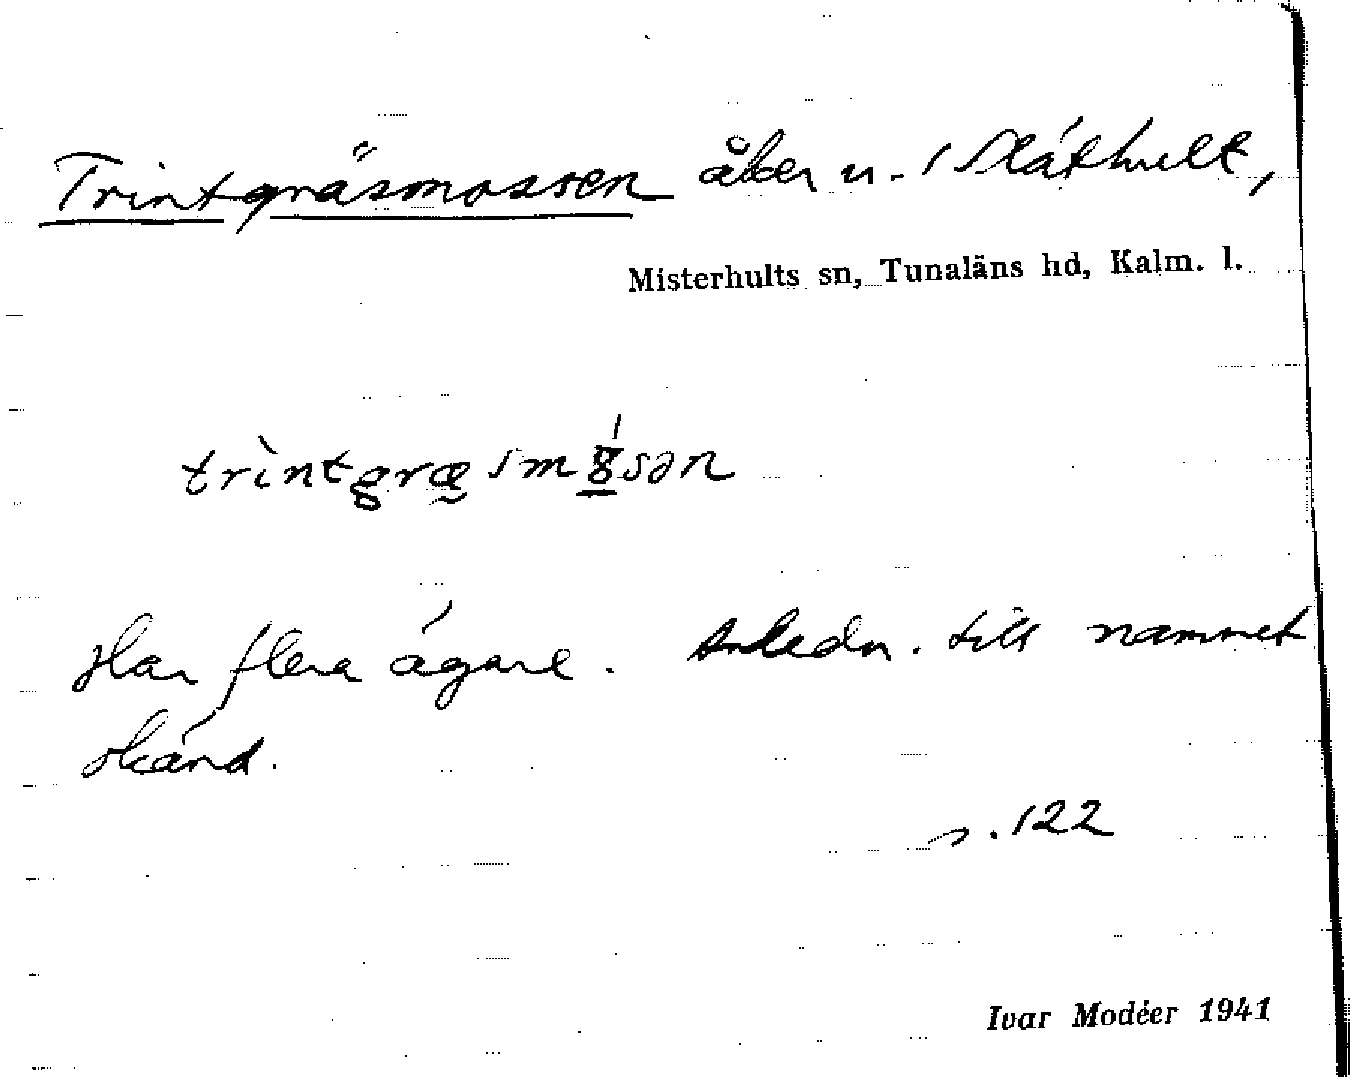 Trintgräsmossen åker u. Släthult,
Misterhults sn, Tunaläns hd, Kalm. l.
trìntgræsmósən
Har flera ägare. Anledn. till namnet
okänd.
s. 122
Ivar Modéer 1941